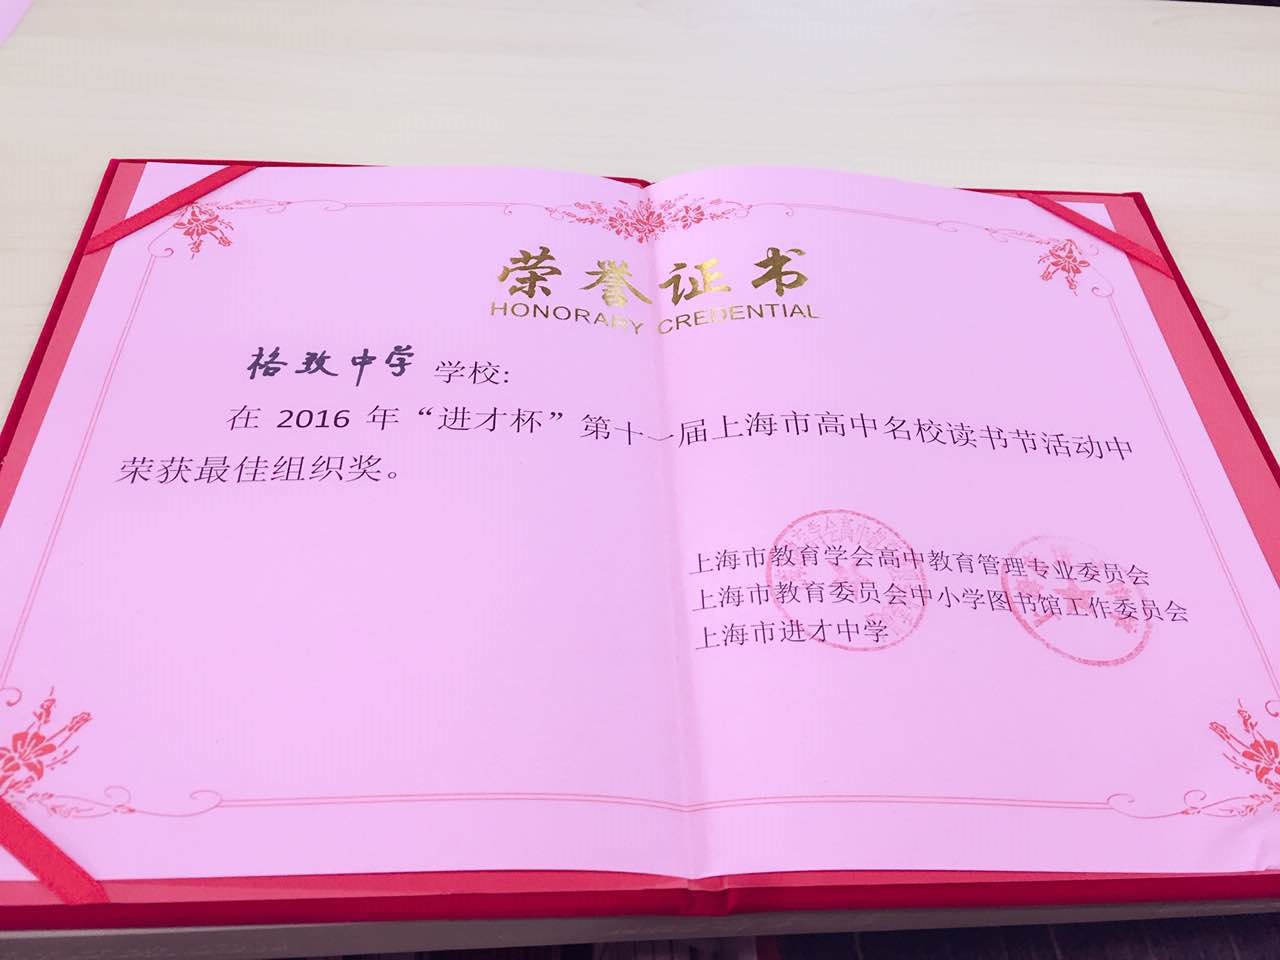 荣誉证书
HONORARY CREDENTIAL
格致中学 学校:
在 2016 年“进才杯”第十一届上海市高中名校读书节活动中
荣获最佳组织奖。
上海市教育学会高中教育管理专业委员会
上海市教育委员会中小学图书馆工作委员会
上海市进才中学